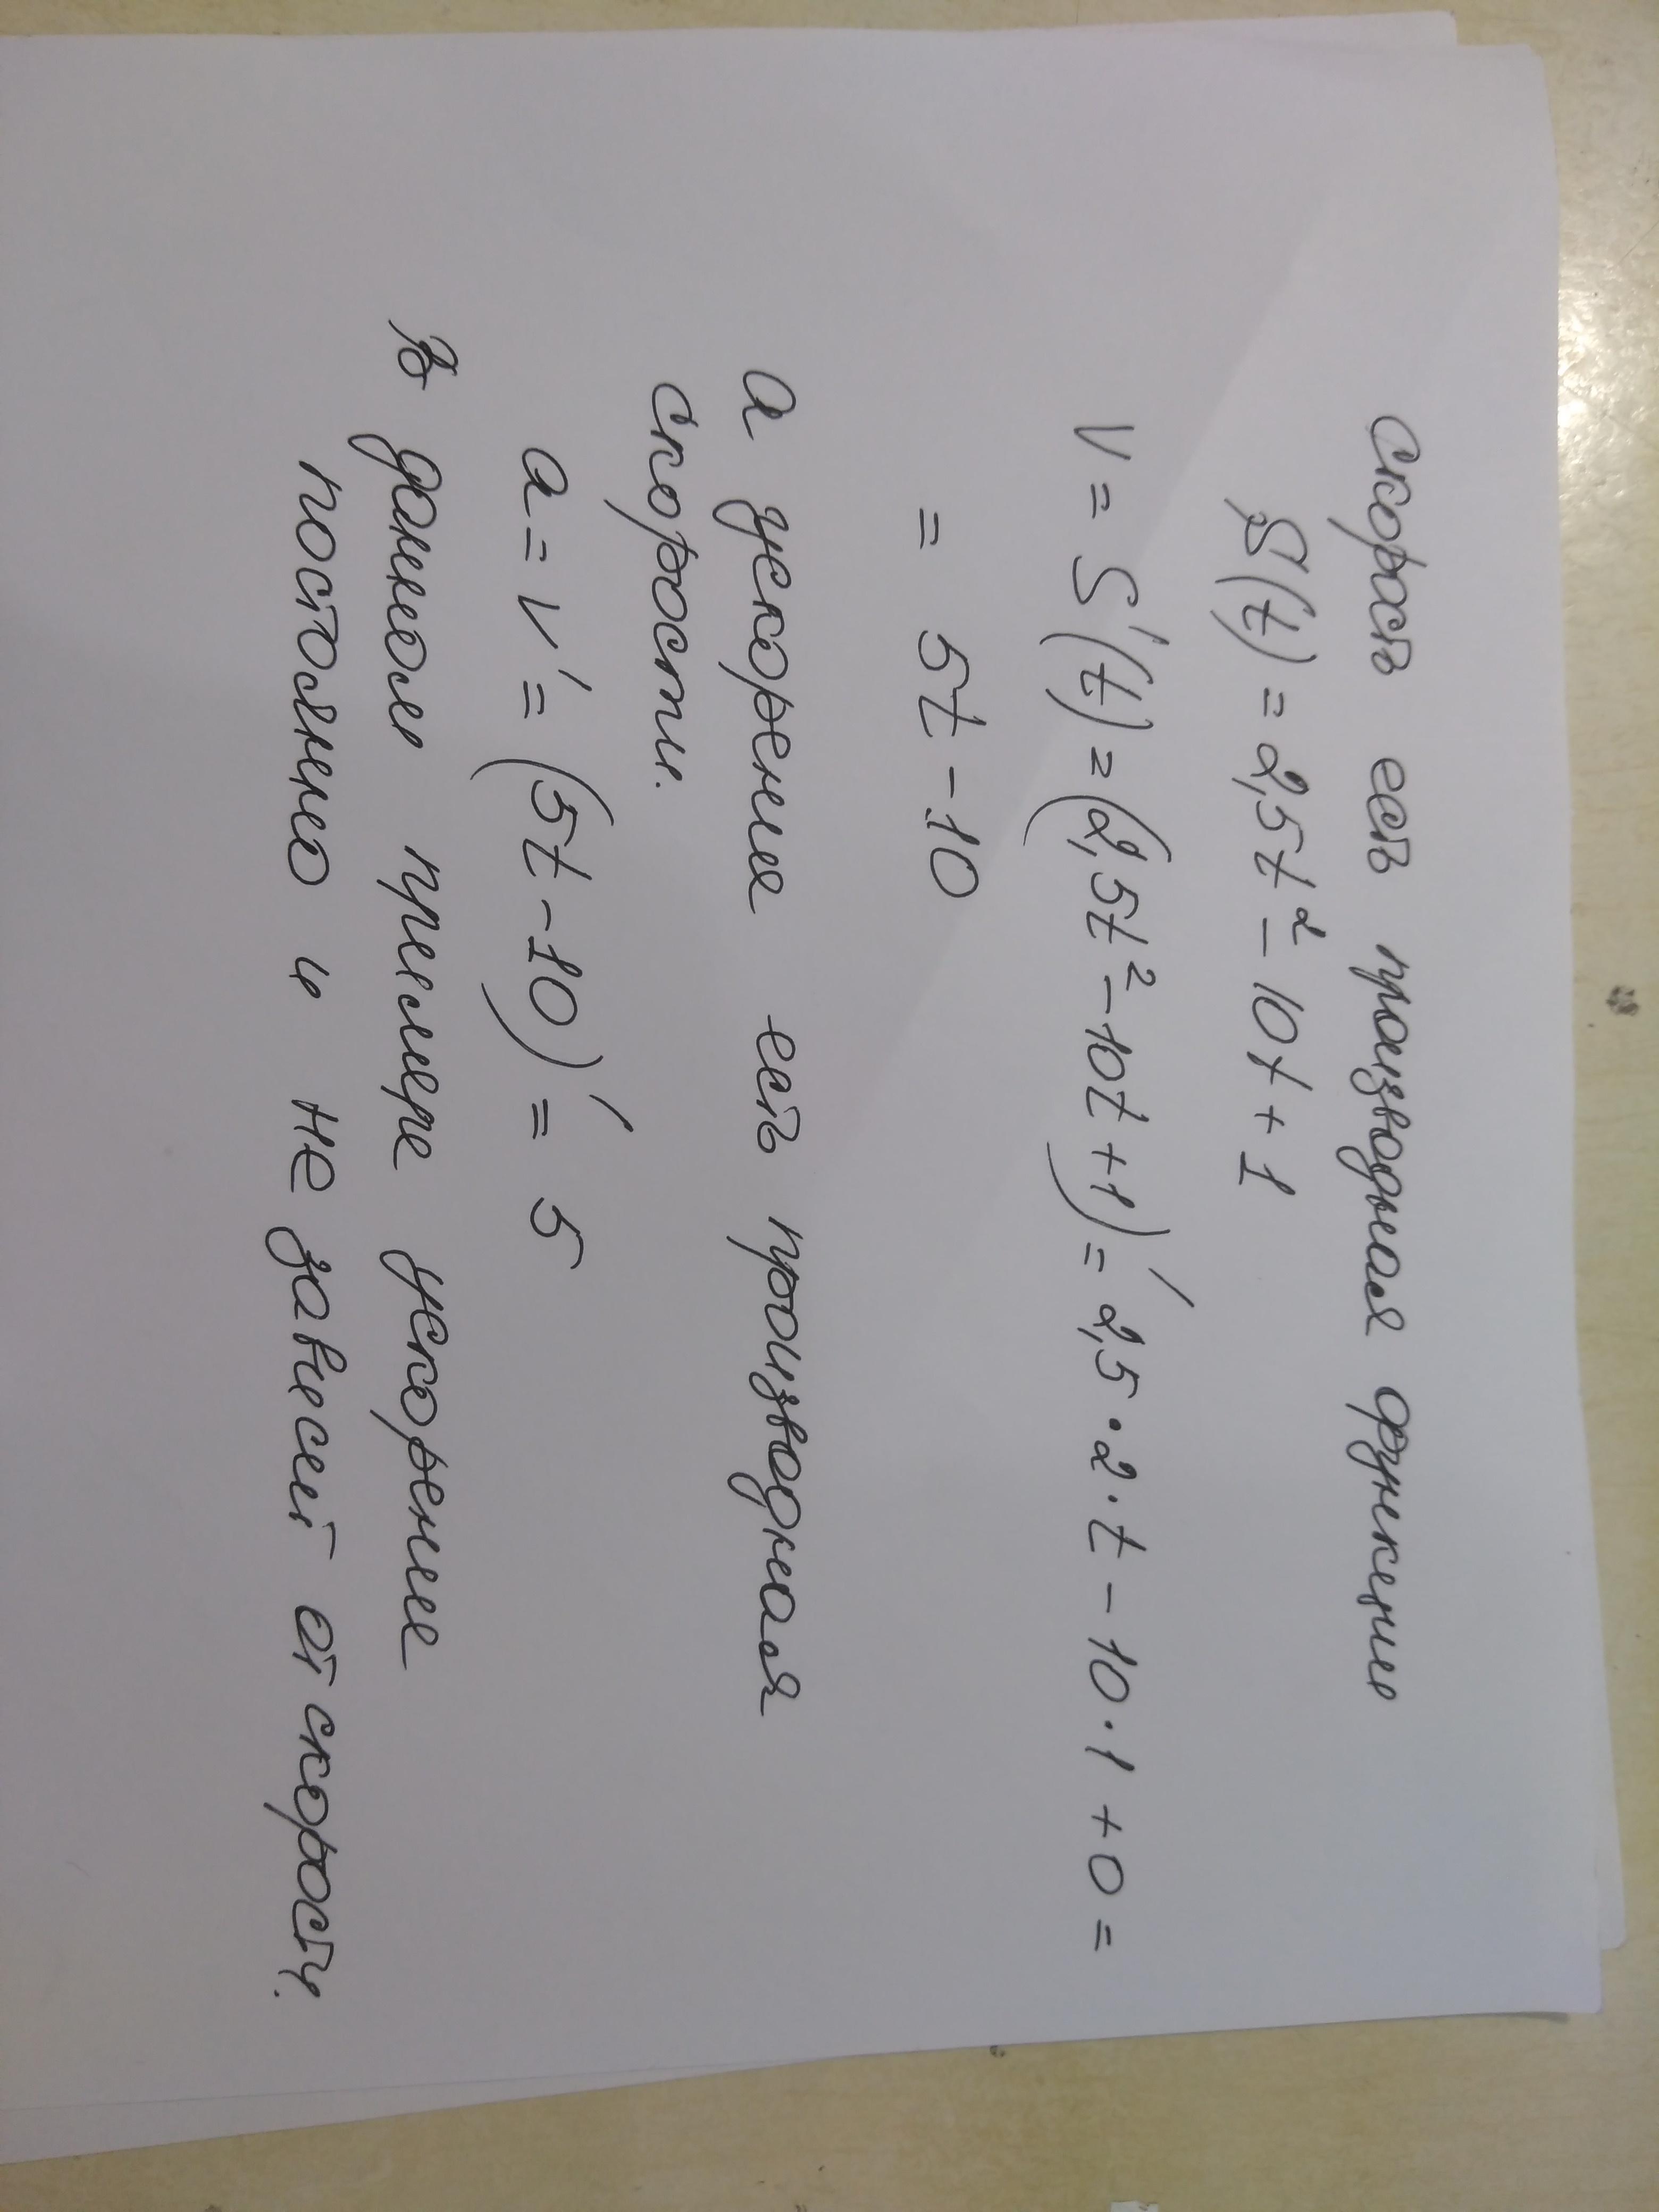 Скорость есть производная функции
S(t) = 2,5t² - 10t + 1
V = S'(t) = (2,5t² - 10t + 1)' = 2,5 · 2 · t - 10 · 1 + 0 =
= 5t - 10
а ускорение есть производная
скорости.
a = V' = (5t - 10)' = 5
В данном примере ускорение
постоянно и не зависит от скорости.